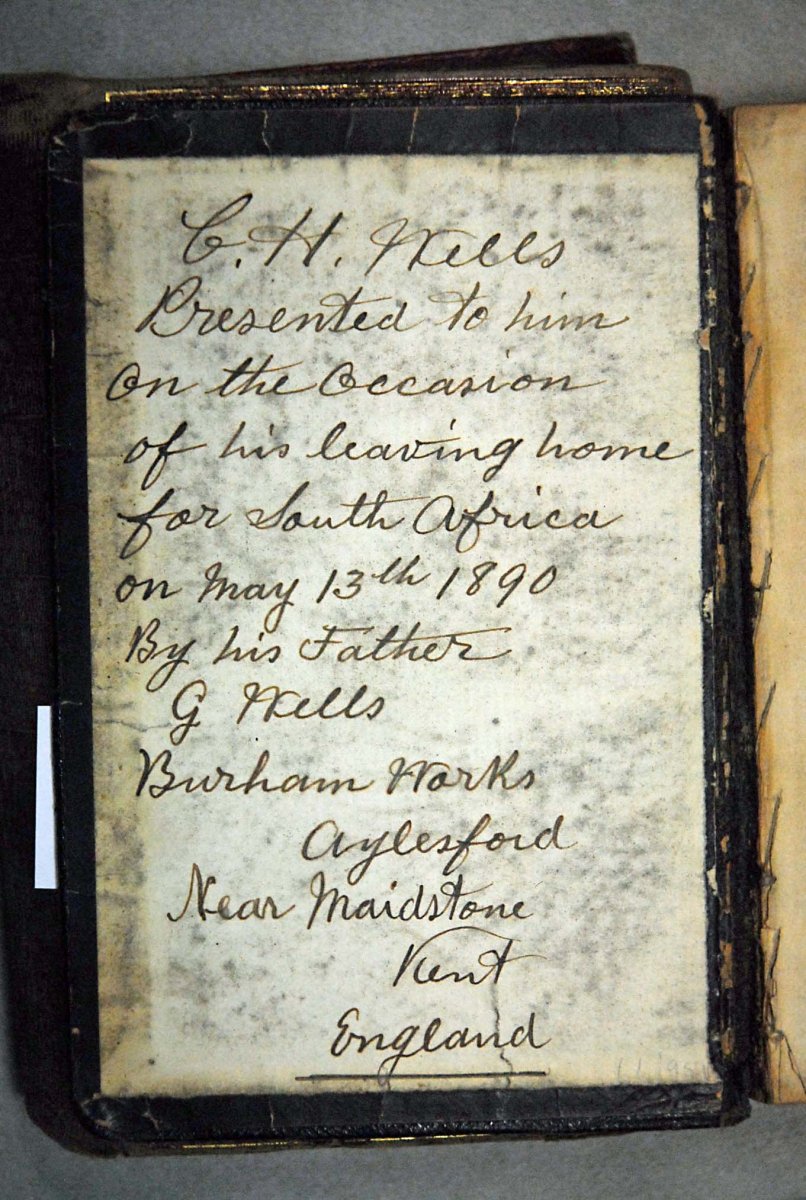 C. H. Wells
Presented to him
On the Occasion
of his leaving home
for South Africa
on May 13th 1890
By his Father
G Wells
Burham Works
Aylesford
Near Maidstone
Kent
England